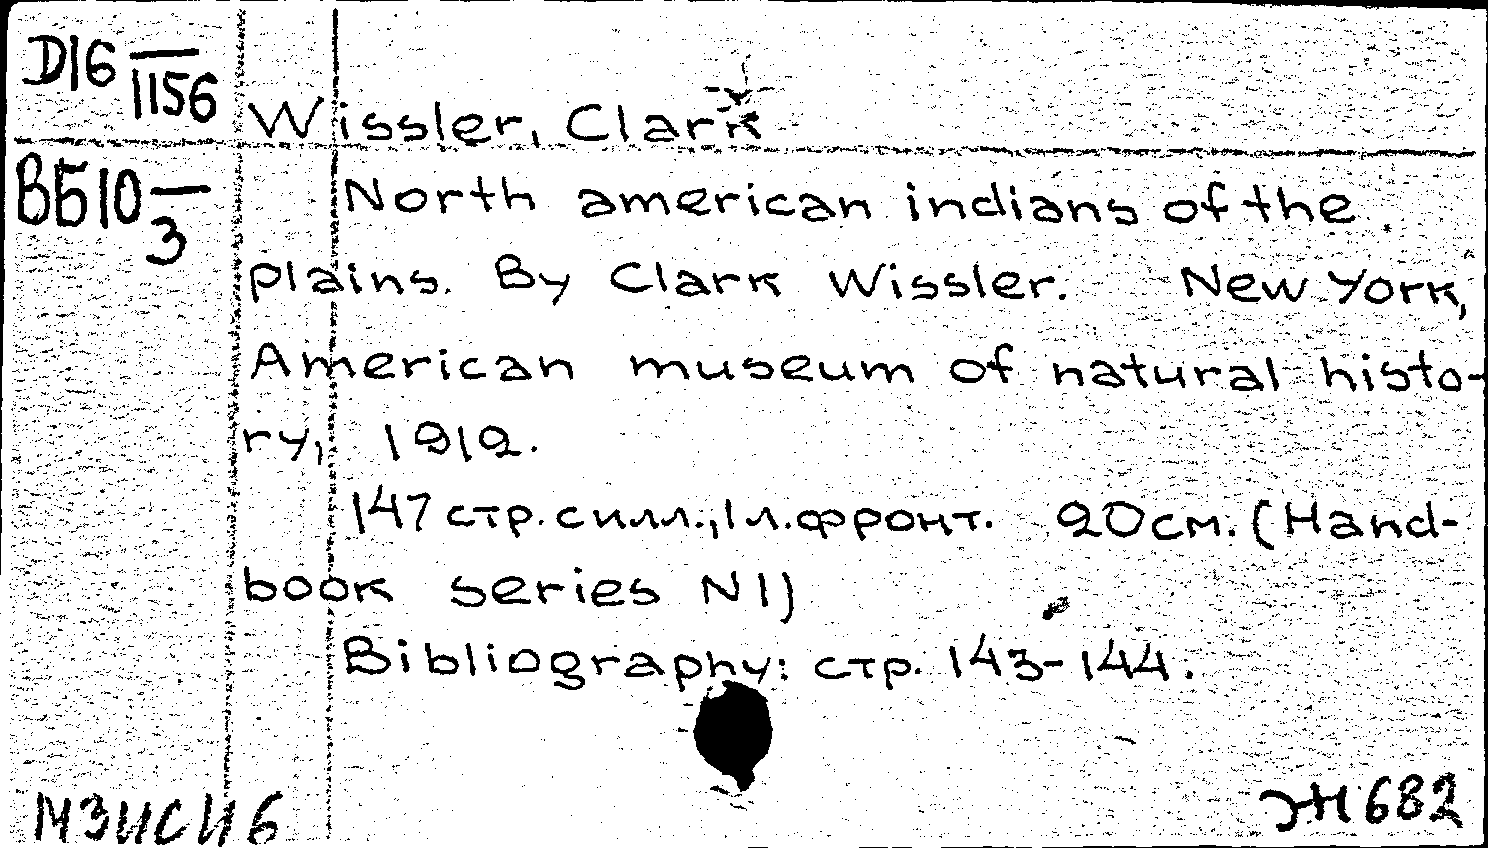 D16 —
1156
Wissler, Clark
ВБ10 —
3
North american indians of the
plains. By Clark Wissler. New York,
American museum of natural histo-
ry, 1912.
147 стр. с илл., 1 л. фронт. 20 см. (Hand-
book series N 1)
Bibliography: стр. 143-144.
682